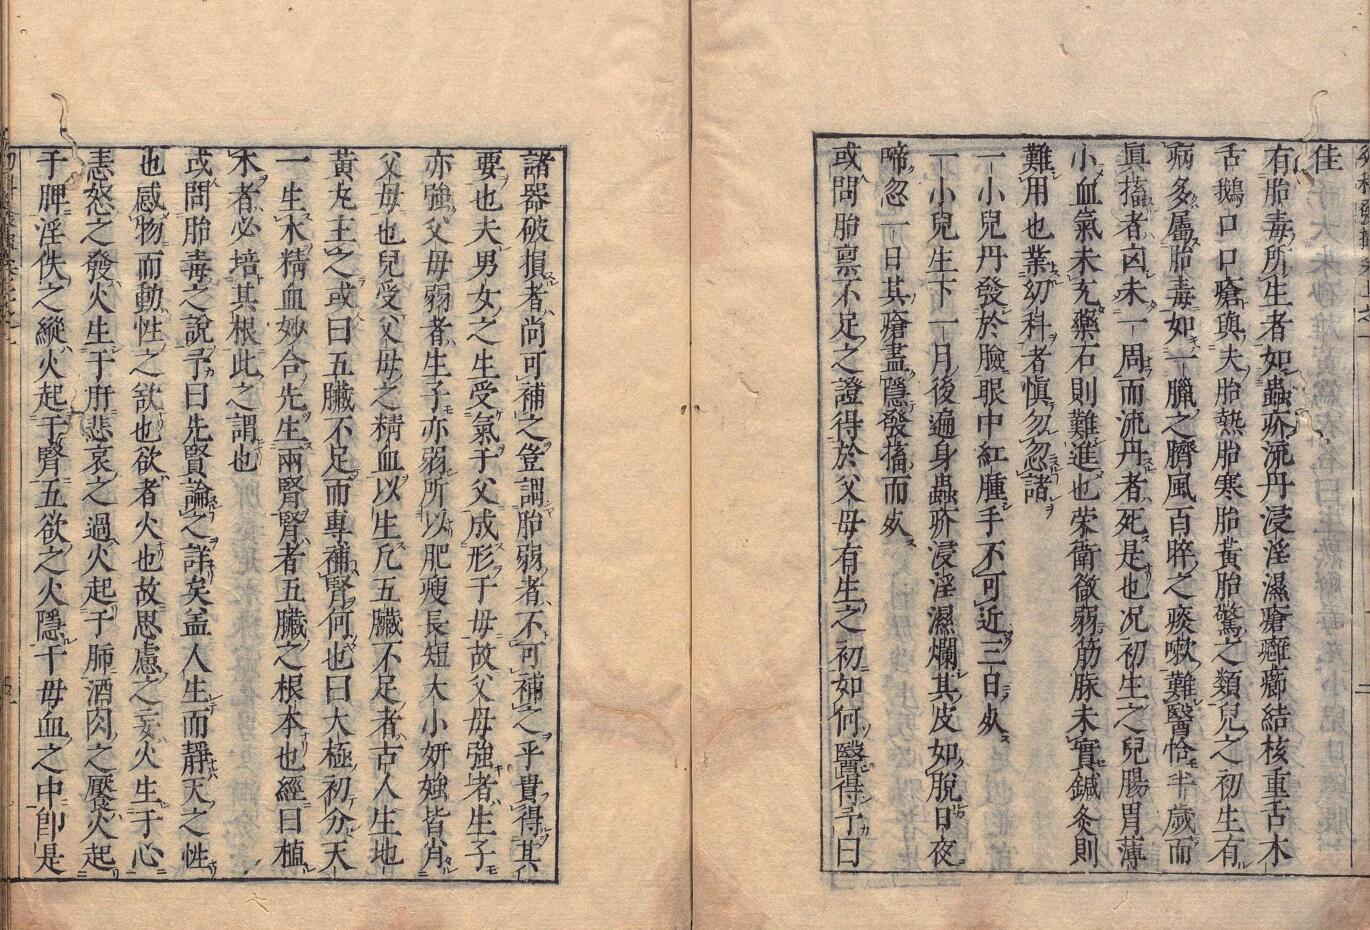 佳
有胎毒所生者如蟲疥流丹浸淫濕瘡癰癤結核重舌木
舌鵝口口瘡與夫胎熱胎寒胎黃胎驚之類兒之初生有
病多屬胎毒如一臘之臍風百晬之痰嗽難醫恰半歲而
真搐者凶未一周而流丹者死是也況初生之兒腸胃薄
小血氣未充藥石則難進也荣衛微弱筋脉未實鍼灸則
難用也業幼科者慎勿忽諸
一小兒丹發於臉眼中紅腫手不可近三日死
一小兒生下一月後遍身蟲疥浸淫濕爛其皮如脫日夜
啼忽一日其瘡盡隱發搐而死
或問胎禀不足之證得於父母有生之初如何醫得予曰
諸器破損者尚可補之豈謂胎弱者不可補之乎貴得其
要也夫男女之生受氣于父成形于母故父母強者生子
亦強父母弱者生子亦弱所以肥瘦長短大小妍媸皆肖
父母也兒受父母之精血以生凡五臟不足者古人生地
黃丸主之或曰五臟不足而專補腎何也曰大極初分天
一生水精血妙合先生兩腎腎者五臟之根本也經曰植
木者必培其根此之謂也
或問胎毒之說予曰先賢論之詳矣盖人生而靜天之性
也感物而動性之欲也欲者火也故思慮之妄火生于心
恚怒之發火生于肝悲哀之過火起于肺酒肉之饜火起
于脾淫佚之縱火起于腎五欲之火隱于母血之中即是